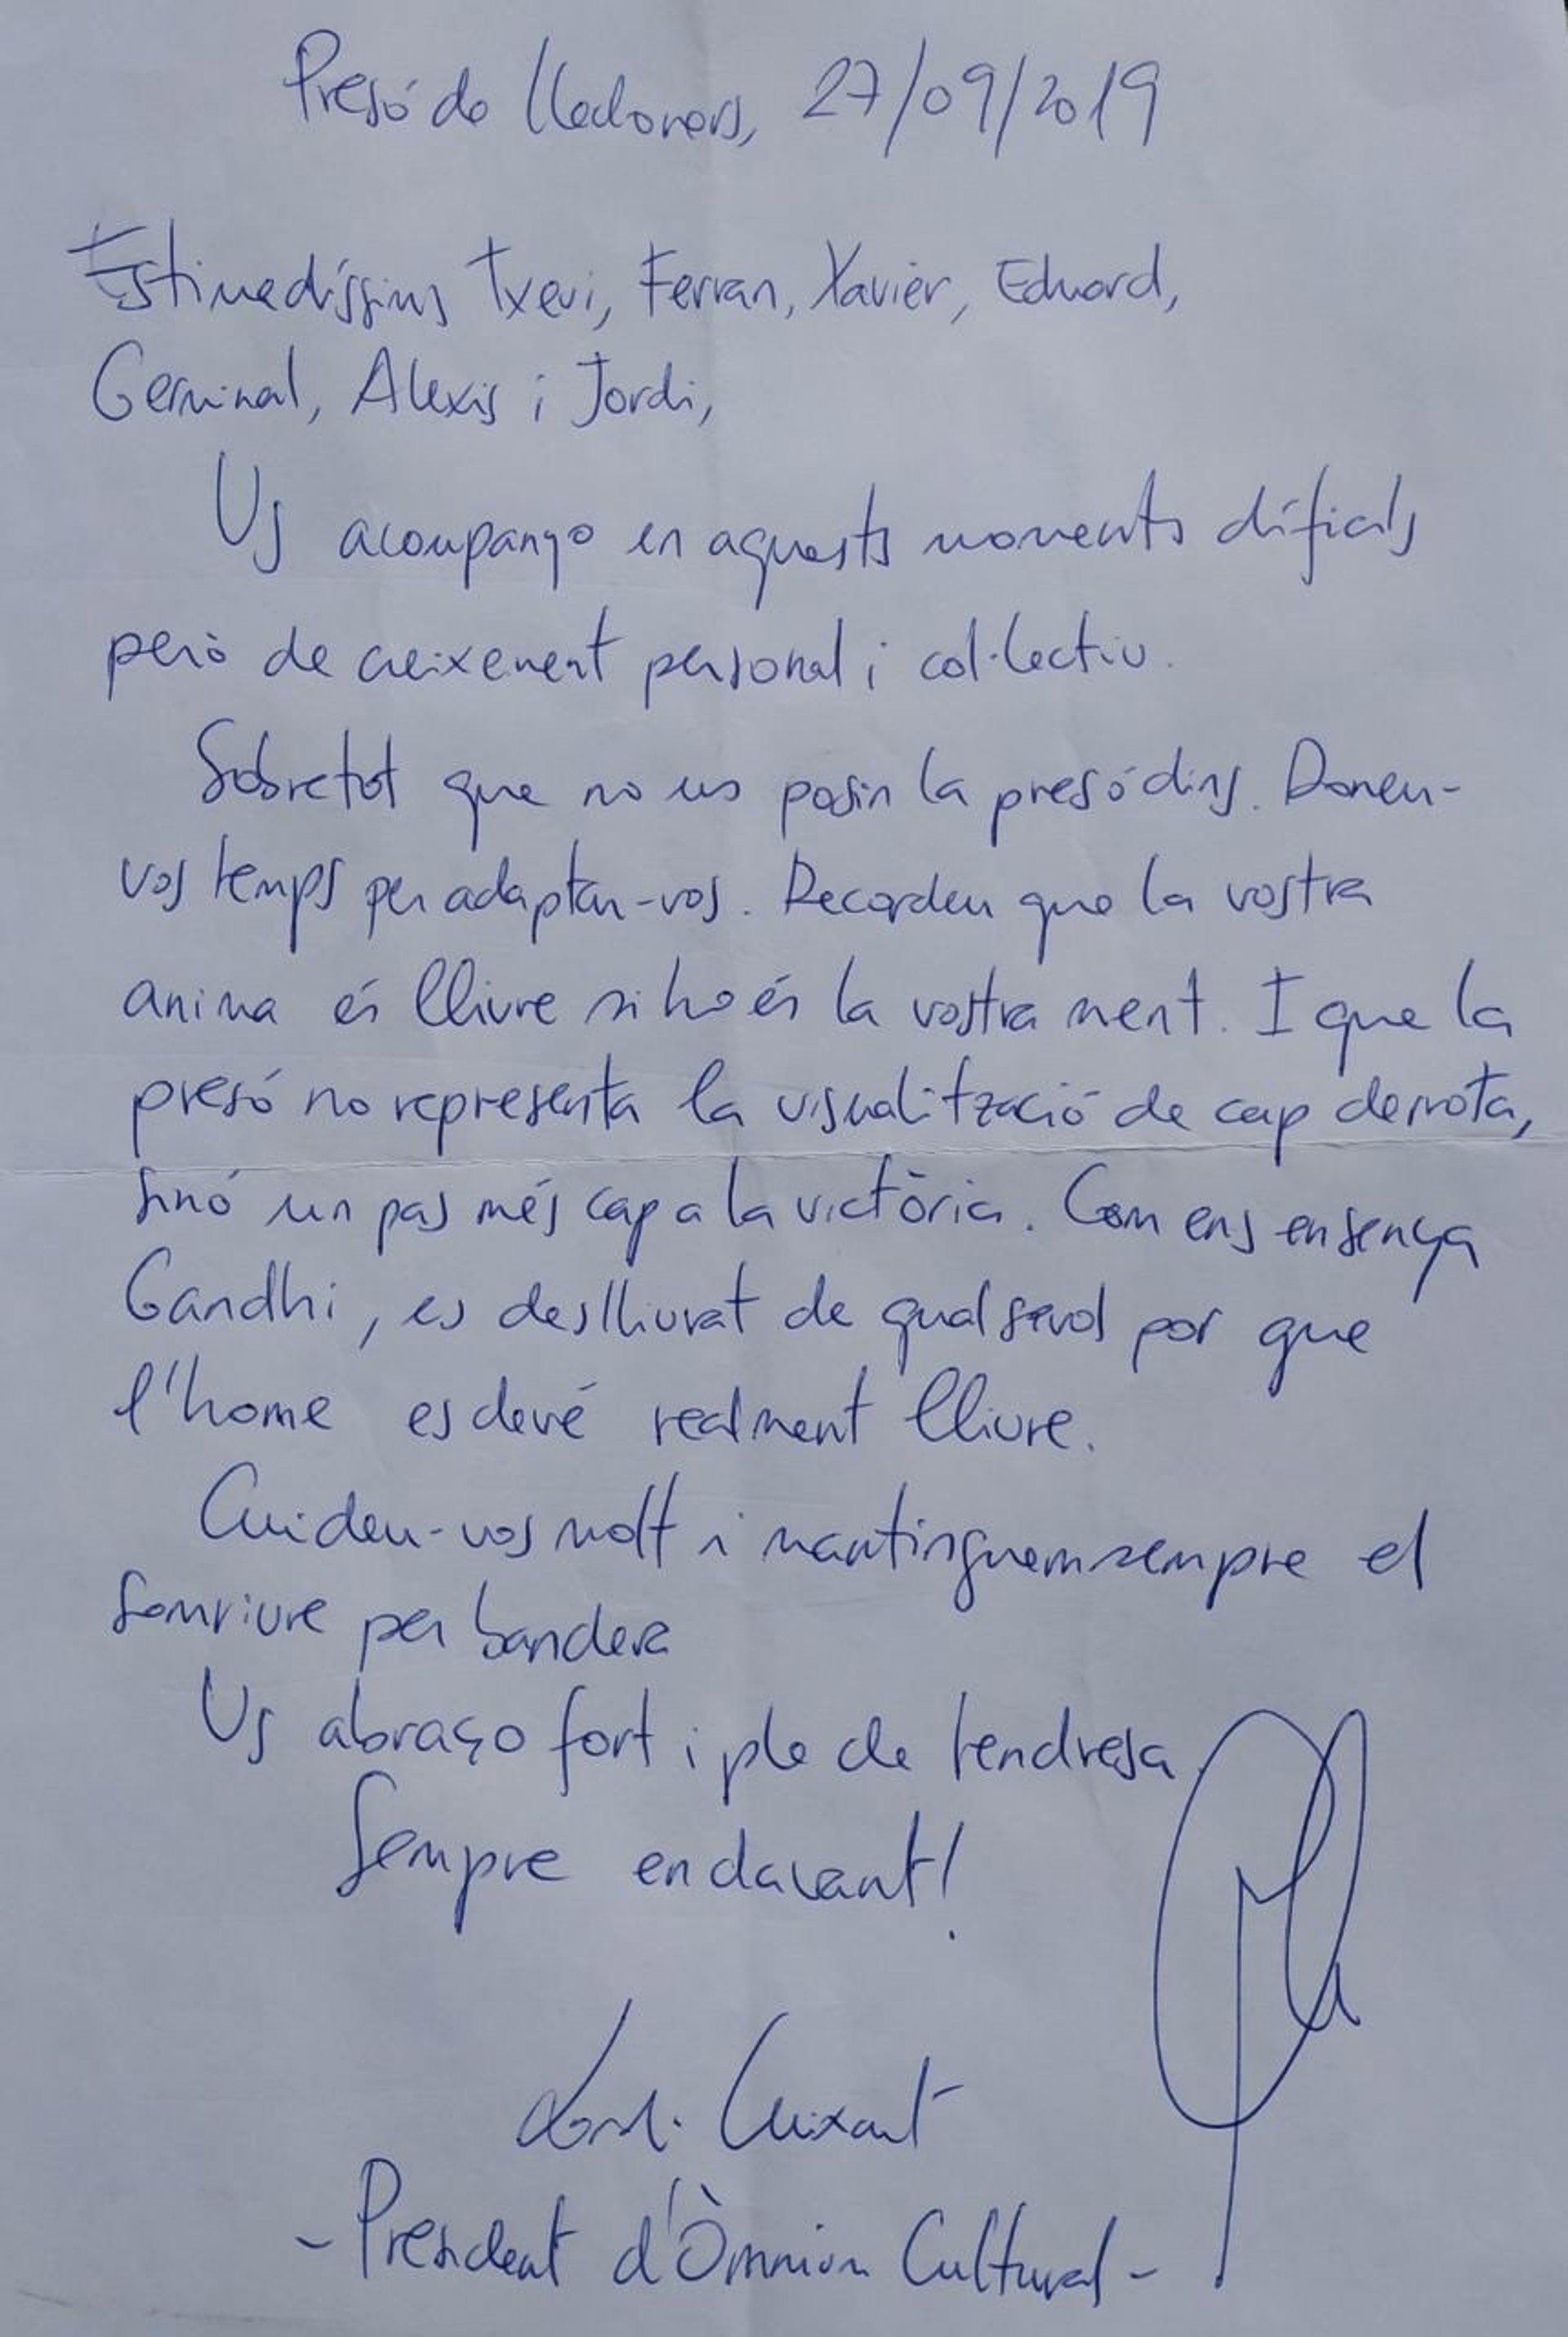 Presó de Lledoners, 27/09/2019
Estimadíssims Txevi, Ferran, Xavier, Eduard,
Germinal, Alexis i Jordi,
Us acompanyo en aquests moments difícils
però de creixement personal i col·lectiu.
Sobretot que no us posin la presó dins. Doneu-
vos temps per adaptar-vos. Recordeu que la vostra
anima és lliure si ho és la vostra ment. I que la
presó no representa la visualització de cap derrota,
sinó un pas més cap a la victòria. Com ens ensenya
Gandhi, es deslliurat de qualsevol por que
l'home esdevé realment lliure.
Cuideu-vos molt i mantinguem sempre el
somriure per bandera
Us abraço fort i ple de tendresa.
Sempre endavant!
Jordi Cuixart
- President d'Òmnium Cultural -